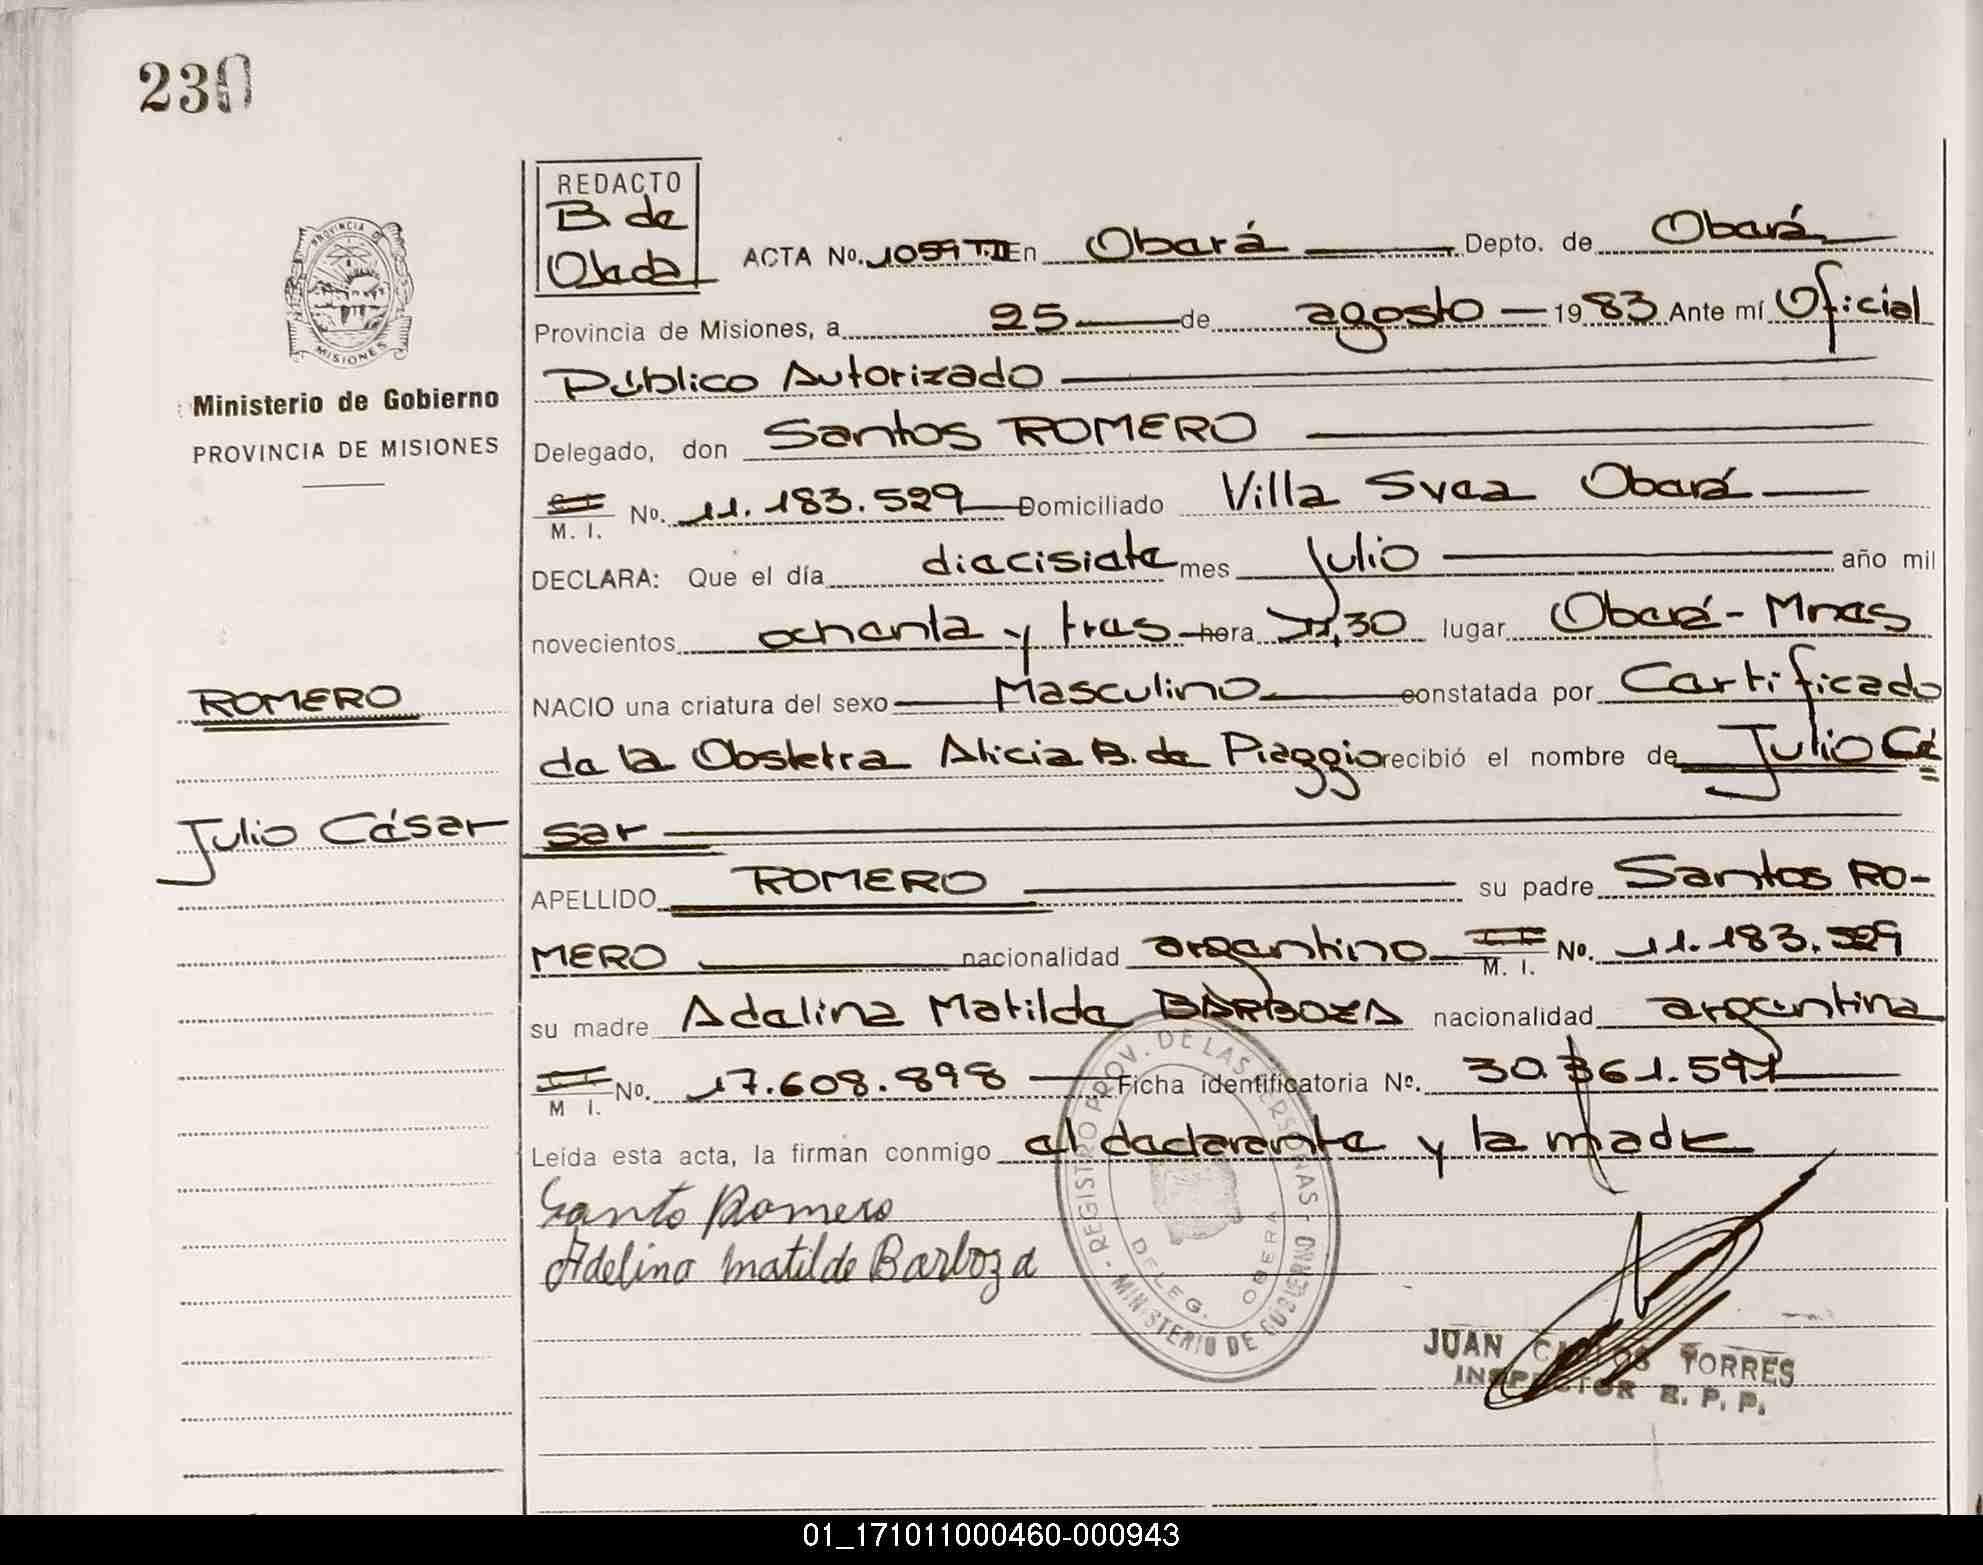 230
REDACTO
B. de
Olada
ACTA No. 1059 T.II En Oberá Depto. de Oberá
Provincia de Misiones, a 25 de agosto 1983 Ante mí Oficial
Público Autorizado
Delegado, don Santos ROMERO
M. I. No. 11.183.529 Domiciliado Villa Svea Oberá
DECLARA: Que el día diecisiete mes julio año mil
novecientos ochenta y tres hora ,30 lugar Oberá - Mnes
NACIO una criatura del sexo Masculino constatada por Certificado
de la Obstetra Alicia B. de Piaggio recibió el nombre de Julio Cé
sar
APELLIDO ROMERO su padre Santos RO-
MERO nacionalidad argentino M. I. No. 11.183.529
su madre Adelina Matilde BARBOZA nacionalidad argentina
M I. No. 17.608.898 Ficha identificatoria No. 30.361.597
Leída esta acta, la firman conmigo el declarante y la madre
Santo Romero
Adelina Matilde Barboza
PROVINCIA DE
MISIONES
Ministerio de Gobierno
PROVINCIA DE MISIONES
ROMERO
Julio César
REGISTRO PROV. DE LAS PERSONAS - MINISTERIO DE GOBIERNO
DELEG. OBERA
JUAN CARLOS TORRES
INSPECTOR R. P. P.
01_171011000460-000943